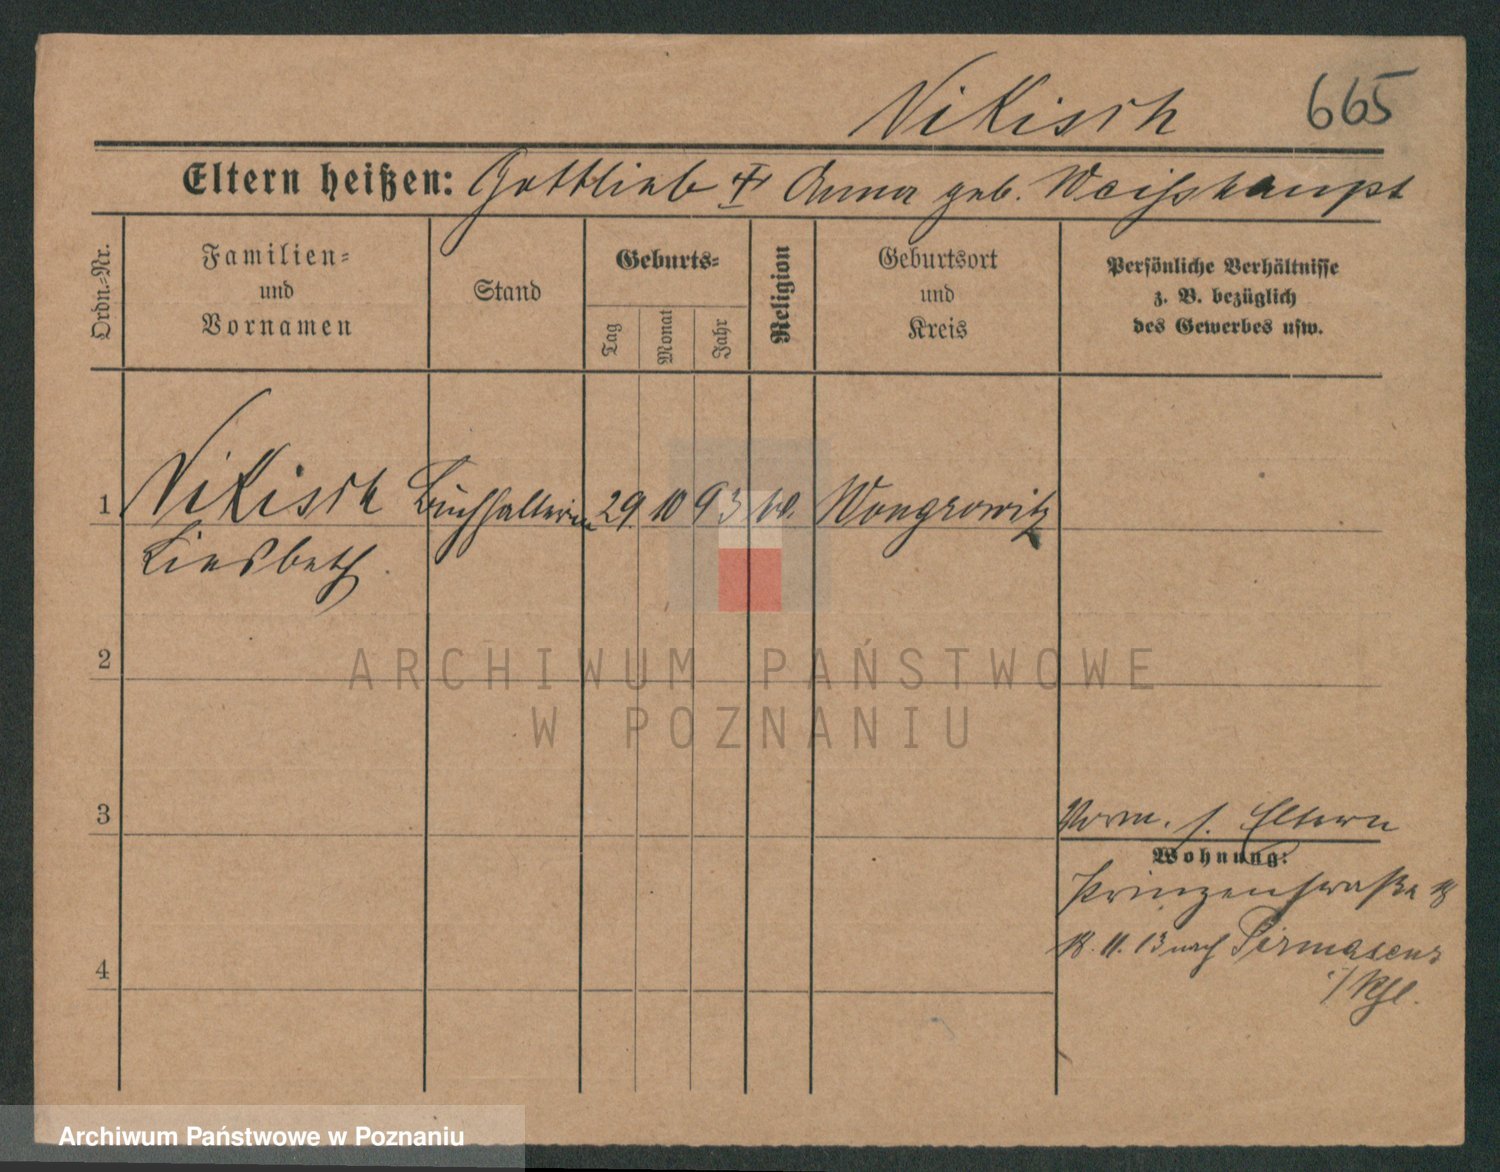 Nikisch 665
Eltern heißen: Gottlieb Anna geb. Weisshaupt
Ordn.=Nr.
Familien=
und
Vornamen
Stand
Geburts=
Tag
Monat
Jahr
Religion
Geburtsort
und
Kreis
Persönliche Verhältnisse
z. B. bezüglich
des Gewerbes usw.
1 Nikisch Buchhalterin 29. 10 93 Wongrowitz
Liesbeth.
2
ARCHIWUM PAŃSTWOWE
W POZNANIU
3
Vorm. s. Eltern
Wohnung:
Prinzenstraße 18
18. 11. 13 nach Pirmasens
4
i/Pfl.
Archiwum Państwowe w Poznaniu